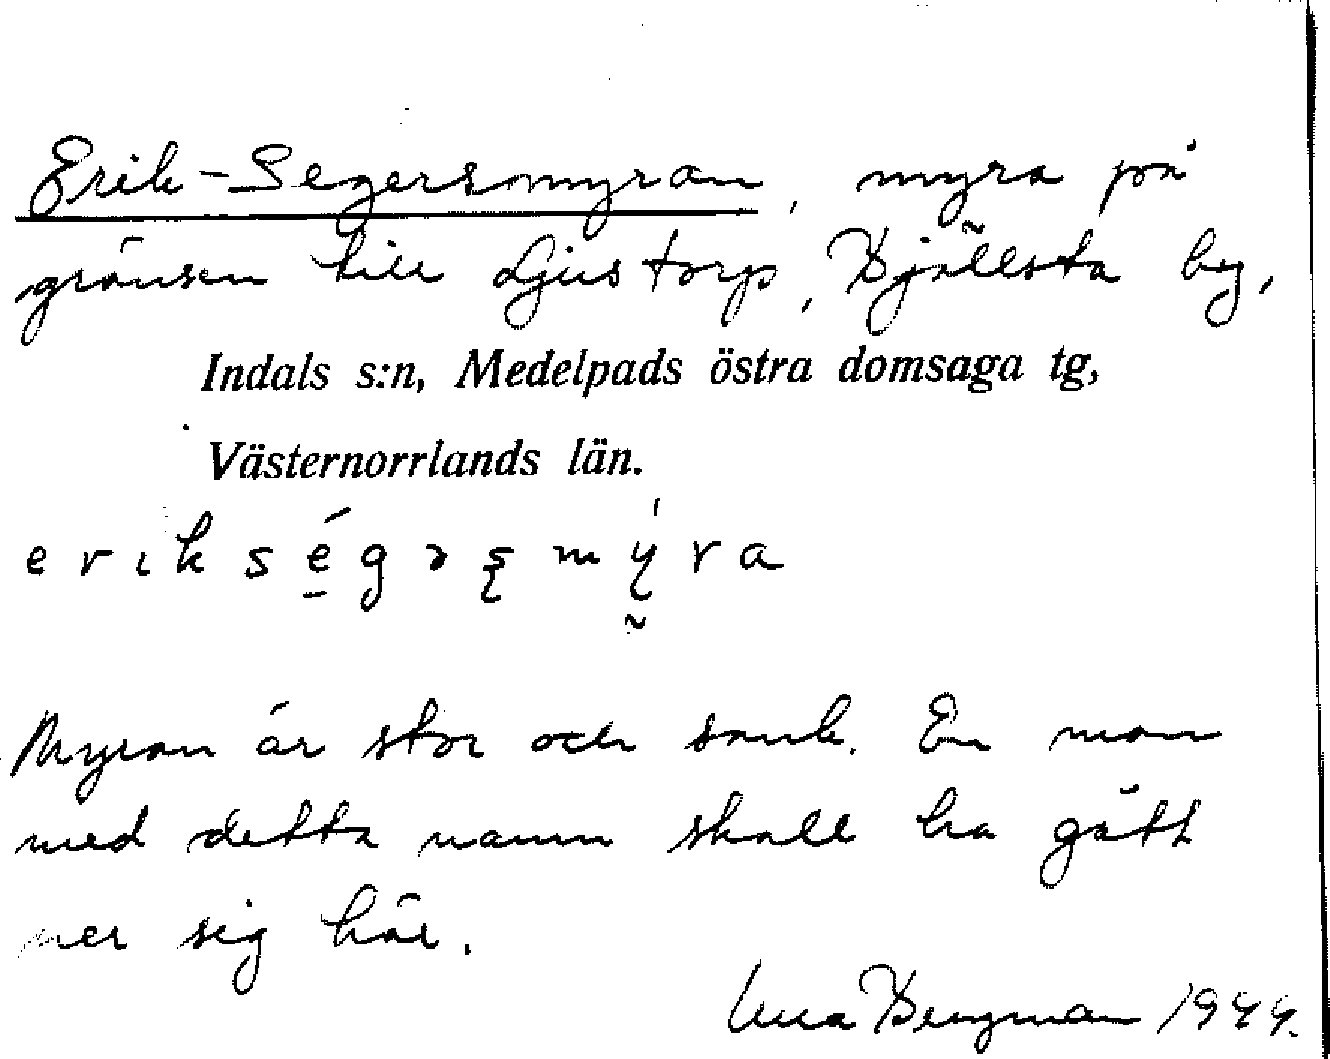 Erik-Segersmyran, myra på
gränsen till Ljustorp, Bjällsta by,
Indals s:n, Medelpads östra domsaga tg,
Västernorrlands län.
erık ségəʂmýra
Myran är stor och sank. En man
med detta namn skall ha gått
ner sig här.
Bergman 1944.